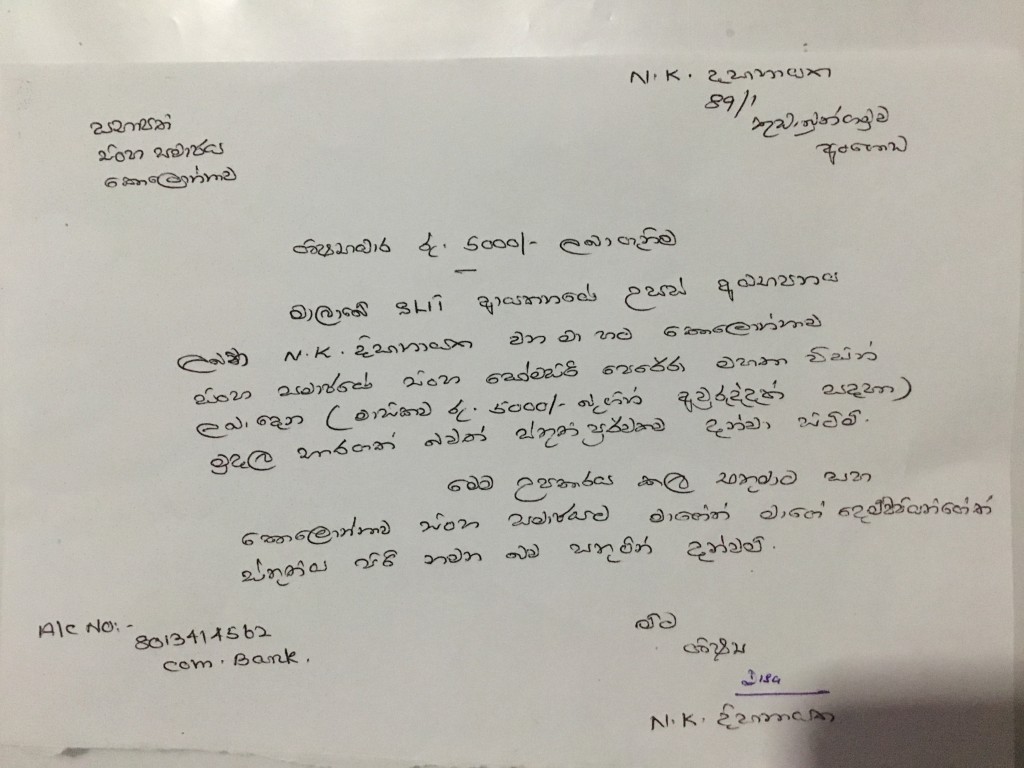 N. K. දිසානායක
89/1
අංගොඩ
සභාපති
සිංහ සමාජය
කොලොන්නාව
ශිෂ්‍යාධාර රු. 5000/- ලබාගැනීම
මාලාඹේ SLIT ආයතනයේ උසස් අධ්‍යාපනය
ලබන N. K. දිසානායක වන මා හට කොලොන්නාව
සිංහ සමාජයේ සිංහ සෝමසිරි පෙරේරා මහතා විසින්
ලබා දෙන (මාසිකව රු. 5000/- බැගින් අවුරුද්දක් සඳහා)
මුදල භාරගත් බවත් ස්තුති පූර්වකව දන්වා සිටිමි.
මෙම උපකාරය කල එතුමාට සහ
කොලොන්නාව සිංහ සමාජයට මාගේත් මාගේ දෙමව්පියන්ගේත්
ස්තුතිය පිරි නමන බව සතුටින් දන්වමි.
A/C No:-
8013414562
Com. Bank.
මීට
ශිෂ්‍ය
N. K. දිසානායක